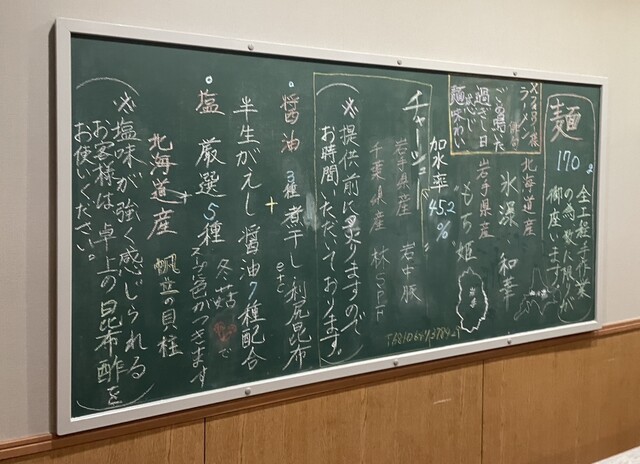 麺
170g
全工程手作業
の為、数に限りが
御座います。
北海道産
氷澡、和華
岩手県産
もち姫
岩手
ラーメン
この鶏た
過ごし日
感じ
麺味わい
加水率
45.2
%
チャーシュー
岩手県産 岩中豚
千葉県産 林SPF
(※提供前に炙りますので
お時間いただいております。)
醤油 3種煮干し利尻昆布
+ etc
半生がえし醤油7種配合
塩 厳選5種 冬菇で
色がつきます
+
北海道産 帆立の貝柱
(※塩味が強く感じられる
お客様は、卓上の昆布酢を
お使いください。)